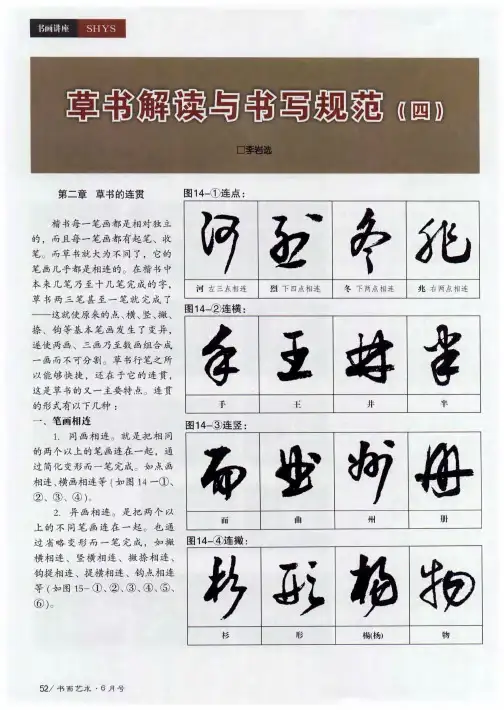 书画讲座 SHYS
草书解读与书写规范（四）
□李岩选
第二章 草书的连贯
楷书每一笔画都是相对独立
的，而且每一笔画都有起笔、收
笔。而草书就大为不同了，它的
笔画几乎都是相连的。在楷书中
本来几笔乃至十几笔完成的字，
草书两三笔甚至一笔就完成了
——这就使原来的点、横、竖、撇、
捺、钩等基本笔画发生了变异，
遂使两画、三画乃至数画组合成
一画而不可分割。草书行笔之所
以能够快捷，还在于它的连贯，
这是草书的又一主要特点。连贯
的形式有以下几种：
一、笔画相连
1. 同画相连。就是把相同
的两个以上的笔画连在一起，通
过简化变形而一笔完成。如点画
相连、横画相连等（如图 14 一①、
②、③、④）。
2. 异画相连。是把两个以
上的不同笔画连在一起。也通
过省略变形而一笔完成，如撇
横相连、竖横相连、撇捺相连、
钩提相连、提横相连、钩点相连
等（如图 15－①、②、③、④、⑤、
⑥）。
图14-①连点：
河 烈 冬 兆
河 左三点相连 烈 下四点相连 冬 下两点相连 兆 右两点相连
图14-②连横：
手 王 井 半
手 王 井 半
图14-③连竖：
而 曲 州 册
而 曲 州 册
图14-④连撇：
杉 形 杨 物
杉 形 楊(杨) 物
52/ 书画艺术·6月号